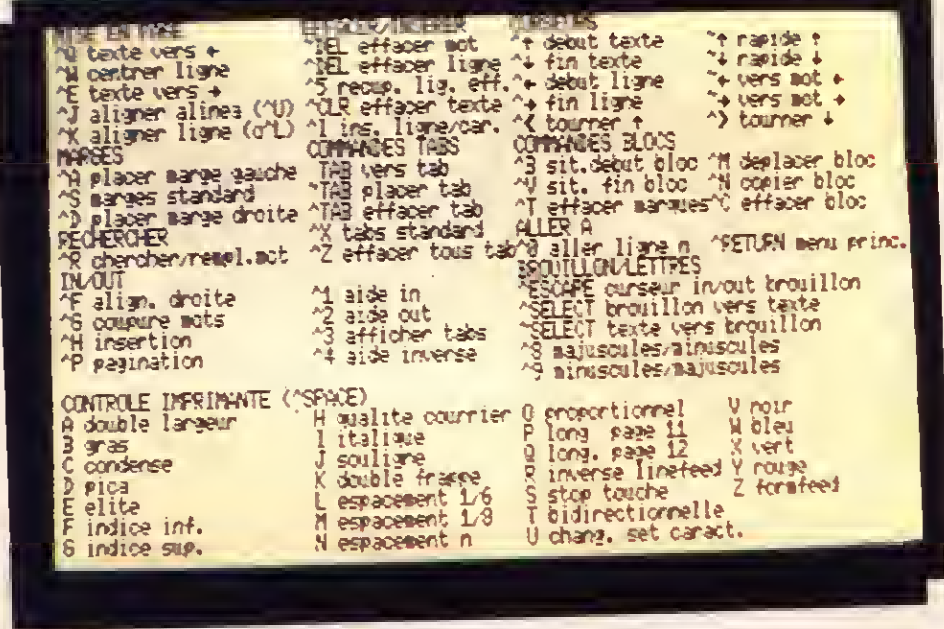 MISE EN PAGE
^Q texte vers ←
^W centrer ligne
^E texte vers →
^J aligner alinea (^U)
^K aligner ligne (o^L)
MARGES
^A placer marge gauche
^S marges standard
^D placer marge droite
RECHERCHER
^R chercher/rempl.mot
IN/OUT
^F align. droite
^G coupure mots
^H insertion
^P pagination
EFFACER/INSERER
^DEL effacer mot
^DEL effacer ligne
^5 recup. lig. eff.
^CLR effacer texte
^I ins. ligne/car.
COMMANDES TABS
TAB vers tab
^TAB placer tab
^TAB effacer tab
^X tabs standard
^Z effacer tous tab
^1 aide in
^2 aide out
^3 afficher tabs
^4 aide inverse
CURSEURS
^↑ debut texte
^↓ fin texte
^← debut ligne
^→ fin ligne
^< tourner ↑
^↑ rapide ↑
^↓ rapide ↓
^← vers mot ←
^→ vers mot →
^> tourner ↓
COMMANDES BLOCS
^B sit.debut bloc ^M deplacer bloc
^V sit. fin bloc ^N copier bloc
^T effacer marques^C effacer bloc
ALLER A
^@ aller ligne n ^RETURN menu princ.
BROUILLON/LETTRES
^ESCAPE curseur in/out brouillon
^SELECT brouillon vers texte
^SELECT texte vers brouillon
^8 majuscules/minuscules
^9 minuscules/majuscules
CONTROLE IMPRIMANTE (^SPACE)
A double largeur
B gras
C condense
D pica
E elite
F indice inf.
G indice sup.
H qualite courrier
I italique
J souligne
K double frappe
L espacement 1/6
M espacement 1/8
N espacement n
O proportionnel
P long page 11
Q long. page 12
R inverse linefeed
S stop touche
T bidirectionnelle
U chang. set caract.
V noir
W bleu
X vert
Y rouge
Z formfeed